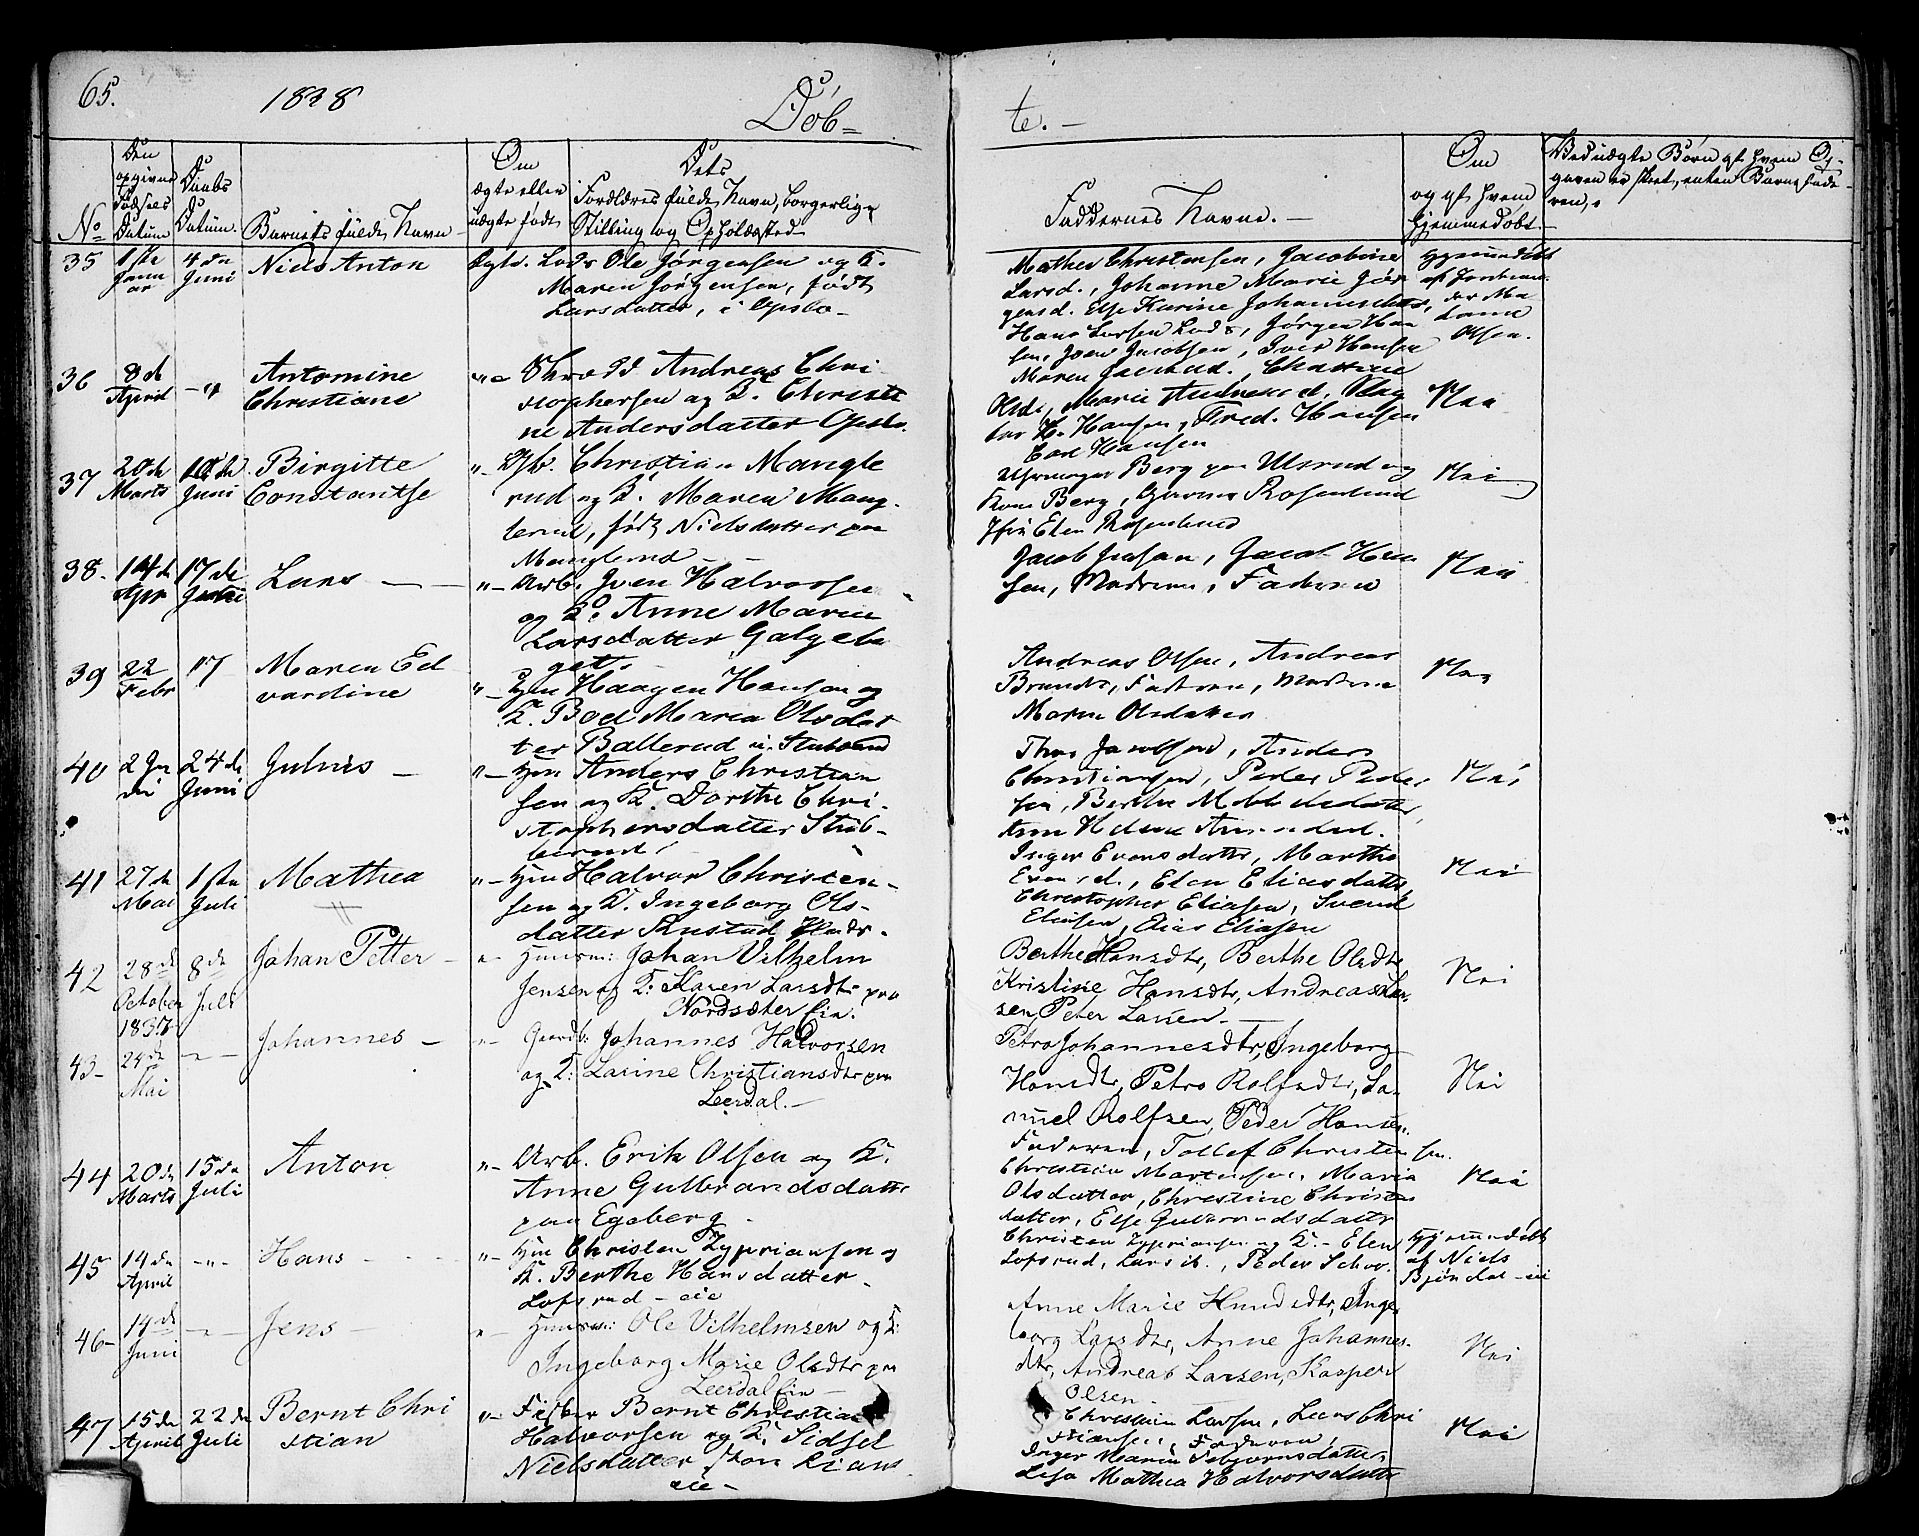 65.
1838
Döb=
te. -
No
Den opgivne Fødsels Datum
Daabs Datum.
Barnets fulde Navn
Om ægte eller uægte født
Dets Forældres fulde Navn, borgerlige Stilling og Opholdssted
Faddernes Navne. -
Om og af hvem hjemmedøbt
Ved uægte Børn af hvem Op-
givien er skeet, enten Barnefade-
ren,
35
1ste Januar
4de Juni
Niels Anton
Ægte.
Ole Jørgensen og K.
Maren Jørgensen, født
Larsdatter, i Opslo -
Mathea Christensen, Jacobine
Larsd., Johanne Marie Jør
gensd. Else Karine Johannesdatter,
Hans Larsen, Jørgen Han
sen, Jacobsen, Iver Hansen
Hjemmedöbt
af
Olsen.
36
8de April
- " -
Antomine
Christiane
" -
Andreas Chri
stophersen og K. Christi
ne Andersdatter Opslo.
Maren
Olsd., Marie Andreasd.
H. Hansen, Fred. Hansen
Carl Hansen
Nei
37
20de Marts
Juni
Birgitte
Constantse
" -
Christian Mangle
rud og K. Maren Mang-
lerud, født Nielsdatter paa
Manglerud -
Berg paa Ulsrud og
Kone Berg, Rosenlund
Elen Rosenlund
Nei
38.
14de Apr
17de Juni
Lars -
" -
Arb. Iver Halvorsen
og K. Anne Maren
Larsdatter Galgeba
get.
Jacob Jensen, Jacob Han
sen, Moderen, Faderen
Nei
39
22 Febr
17
Maren Ed
vardine
" -
Hm Haagen Hansen og
K. Boel Maria Olsdat
ter Ballerud u. Stubberud
Andreas Olsen, Andreas
Brandt, Faderen, Moderen
Maren Olsdatter
Nei
40
24de Juni
Julius -
" -
Hm Anders Christian
sen og K. Dorthe Chri-
stophersdatter Stub-
berud
Thor Jacobsen, Anders
Christiansen, Peder Peder
sen, Berthe
Nei
41
27de Mai
1ste Juli
Mathea
" -
Hm Halvor Christen-
sen og K. Ingeborg Ols-
datter Rustad
Inger Evensdatter, Martha
Evensd., Elen Eliasdatter
Christopher Eliasen, Svend
Eliasen, Elias Eliasen
Nei
42
28de October 1837
8de Juli
Johan Petter -
" -
Huusm: Johan Vilhelm
Jensen og K: Karen Larsdtr paa
Nordsæter Eie.
Berthe Hansdtr, Berthe Olsdtr
Kristine Hansdtr, Andreas Lar-
sen, Peter Larsen -
Nei
43-
24de Mai
- " -
Johannes -
" -
Gaardb: Johannes Halvorsen
og K: Larine Christiansdtr paa
Leerdal. -
Petra Johannesdtr, Ingeborg
Hansdtr, Petro Rolfsdtr, Sa-
muel Rolfsen, Peder Hansen.
Nei
44
20de Marts
15de Juli
Anton
" -
Arb. Erik Olsen og K.
Anne Gulbrandsdatter
paa Egeberg -
Faderen, Tollef Christensen.
Christian Martinsen, Maria
Olsdatter, Christine Christens
datter, Else Gulbrandsdatter
Nei
45
14de April
- " -
Hans -
" -
Hm Christen Zypriansen og
K. Berthe Hansdatter -
Lofsrud - eie
Christen Zypriansen og K. - Elen
Lofsrud, Lars ib., Peder Schor.
Hjemmedöbt
af Niels
Bjöndal - eie
46-
14de Juni
- " -
Jens -
" -
Huusm: Ole Vilhelmsen og K:
Ingeborg Marie Olsdtr paa
Leerdal Eie -
Anne Marie Knudsdtr, Inge
borg Larsdtr, Anne Johannes-
dtr, Andreas Larsen, Kasper
Olsen.
Nei
47
15de April
22de Juli
Bernt Chri
stian
" -
Fisker Bernt Christian
Halvorsen og K. Sidsel
Nielsdatter
eie -
Christian Larsen, Lars Chri
stiansen, Faderen,
Inger Maria Thbjørnsdatter,
Lisa Mathea Halvorsdatter
Nei